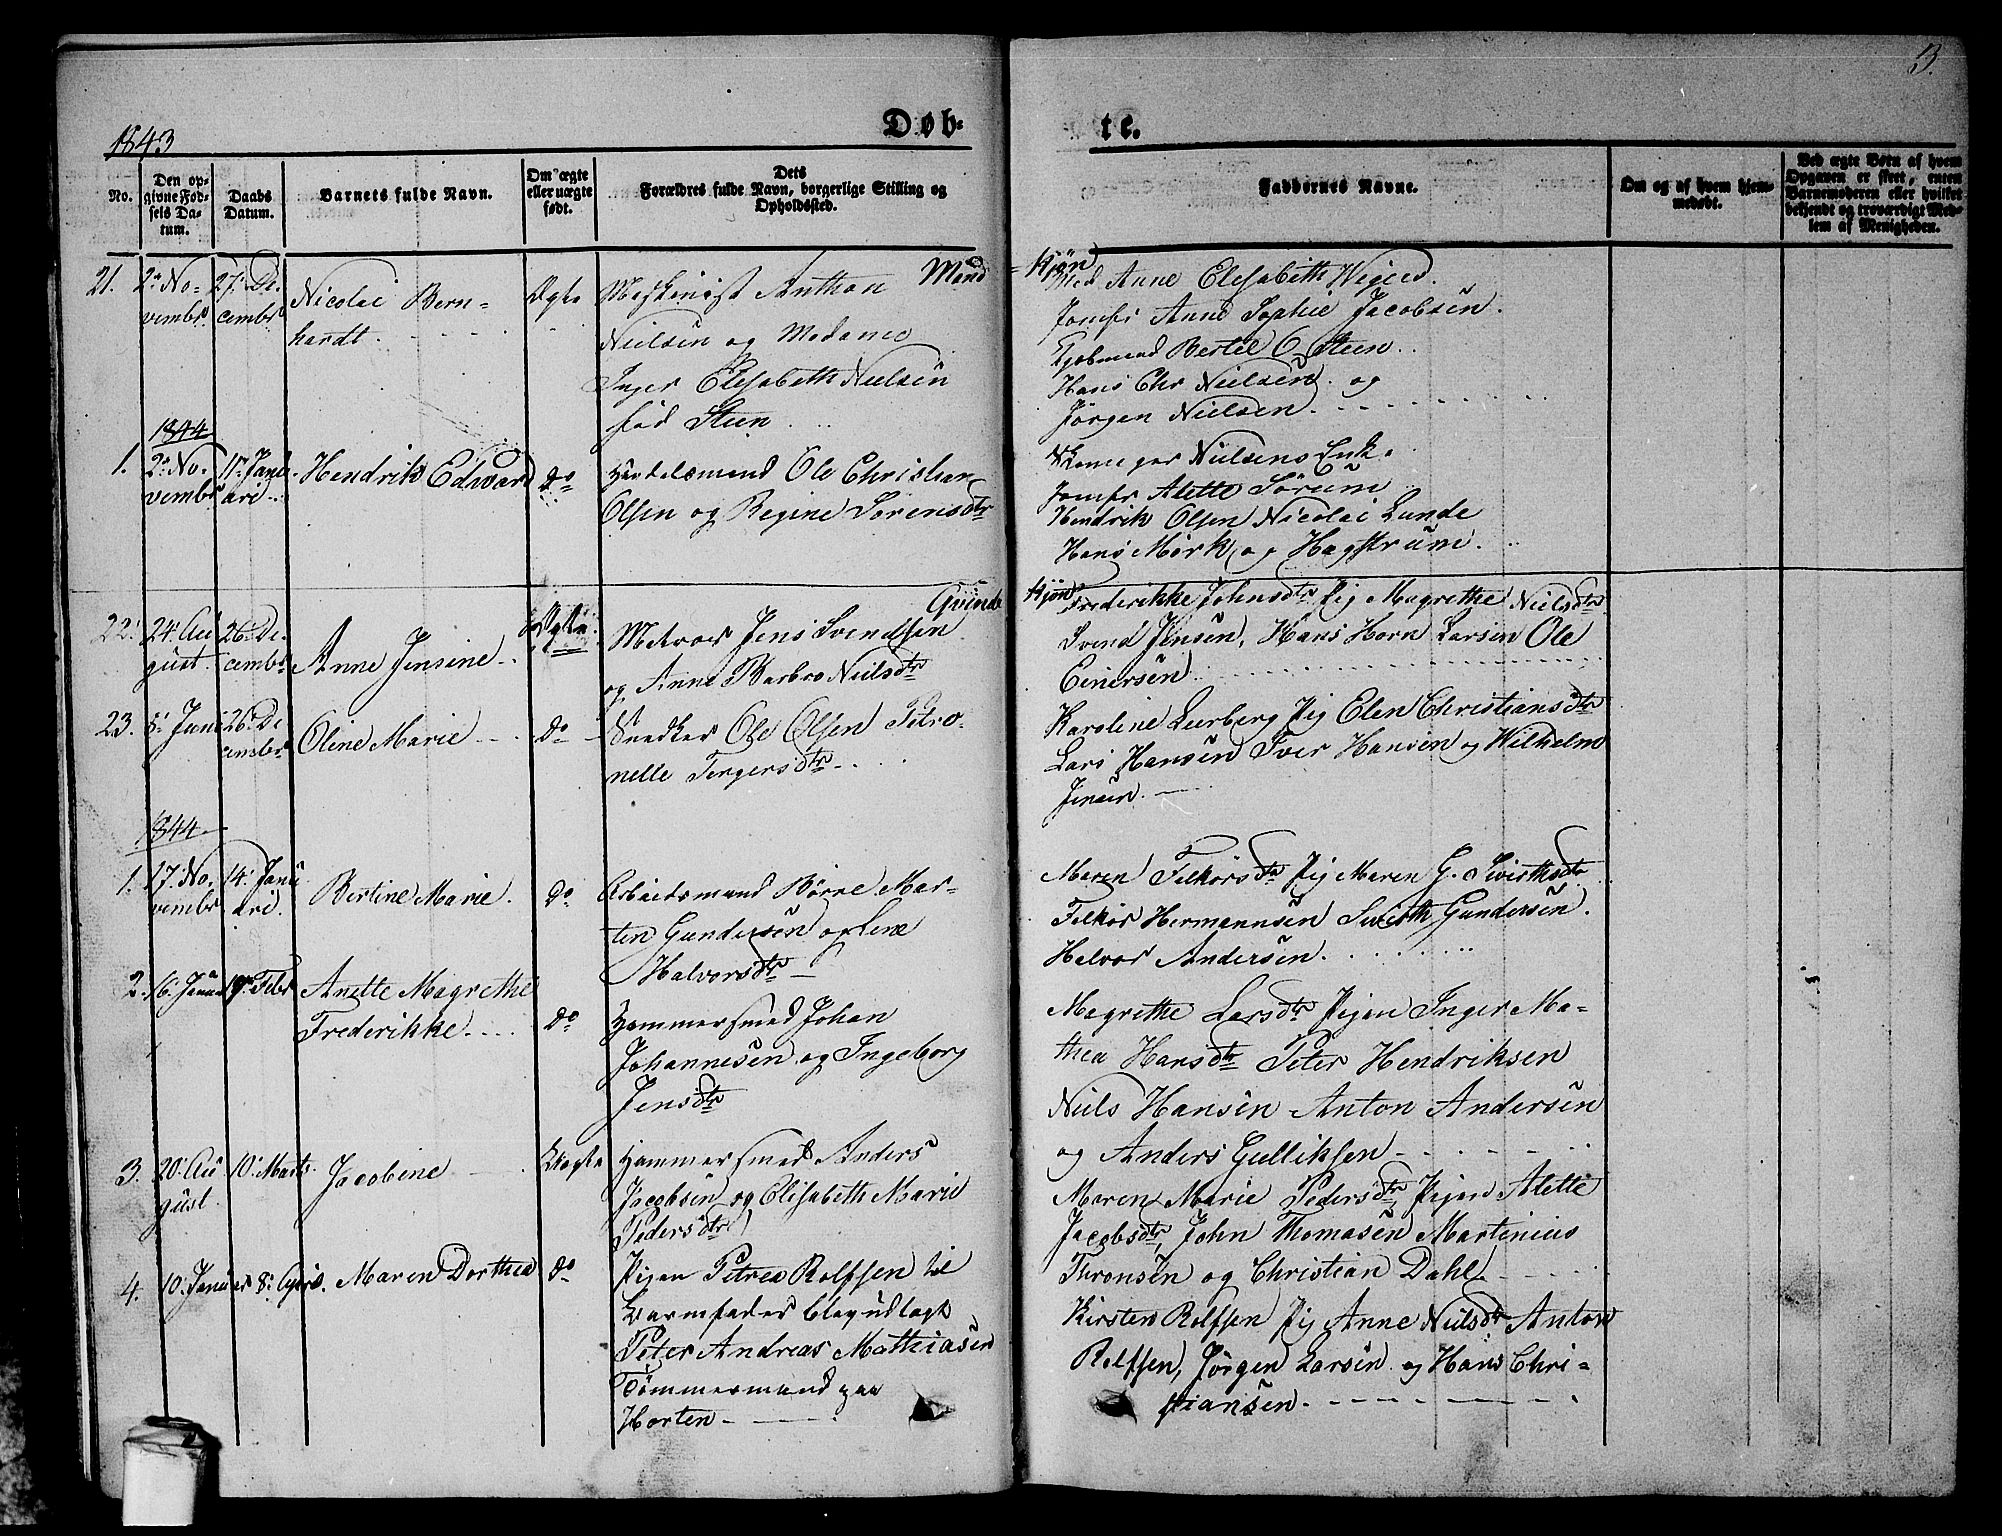 3.
1843
Døb-
te.
No.
Den op-
givne Fød-
sels Da-
tum.
Daabs
Datum.
Barnets fulde Navn.
Om ægte
eller uægte
født.
Dets
Forældres fulde Navn, borgerlige Stilling og
Opholdssted.
Faddernes Navne.
Om og af hvem hjem-
medøbt.
Ved ægte Børn af hvem
Opgaven er skeet, enten
Barnemoderen eller hvilket
bekjendt og troværdigt Med-
lem af Menigheden.
Mand
Kjøn
21.
2: No-
vembr
27: De-
cembr
Nicolai Bern-
hardt.
Ægte
Maskinist Anthon
Nielsen og Madame
Inger Elisabeth Nielsen
fød Steen
Mad Anne Elisabeth
Jomfr Anne Sophie Jacobsen.
Bertel C. Steen
Hans Chr Nielsen. og
Jørgen Nielsen.
1844
1.
2: No-
vembr
17: Janu-
ari
Hendrik Edvard
do
Ole Christian
Olsen og Regine Sørensdtr
Nielsens Enke
Jomfr Alette Sørum
Hendrik Olsen Nicolai Lunde
Hans Mørk og Hagstrum.
Qvinde
Kjøn
22.
24: Au
gust.
26: De-
cembr
Anne Jensine
Ægte
Matros Jens Svendsen
og Anne Barbro Nielsdtr
Frederikke Johnsdtr Pig Magrethe Nielsdtr
Svend Jensen, Hans Horn Larsen Ole
Einersen
23.
5: Juni
26: De
cembr
Oline Marie
do
Snedker Ole Olsen Petro-
nelle Torgersdtr
Karoline Leerberg Pig Elen Christiansdtr
Lars Hansen Iver Hansen og Wilhelm
Jensen.
1844
1.
17: No-
vembr
14: Janu
ari.
Bertine Marie.
do
Arbeidsmand Børre Mar-
ten Gundersen og Lene
Halvorsdtr
Maren Felkörsdtr Pig Maren G. Sivertsdtr
Felkör Hermannsen Gundersen.
Halvor Andersen.
2.
16: Janua
Febr
Anette Magrethe
Frederikke.
do
Hammersmed Johan
Johannesen og Ingeborg
Jensdtr
Magrethe Larsdtr Pigen Inger Ma-
thea Hansdtr Peter Hendriksen
Niels Hansen Anton Andersen
og Anders Gulliksen
3.
20: Au
gust.
10: Marts.
Jacobine
Uægte
Hammersmed Anders
Jacobsen og Elisabeth Marie
Pedersdtr
Maren Marie Pedersdtr, Pigen Alette
Jacobsdtr, John Thomasen Martinius
Thronsen og Christian Dahl
4.
10: Januar
8: April.
Maren Dorthea
do
Pigen Petrea Rolfsen til
Barnefader blev udlagt
Peter Andreas Mathiasen
Tømmermand paa
Horten
Kirsten Rolfsen Pig Anne Nielsdtr Anton
Rolfsen, Jørgen Larsen og Hans Chri-
stiansen.